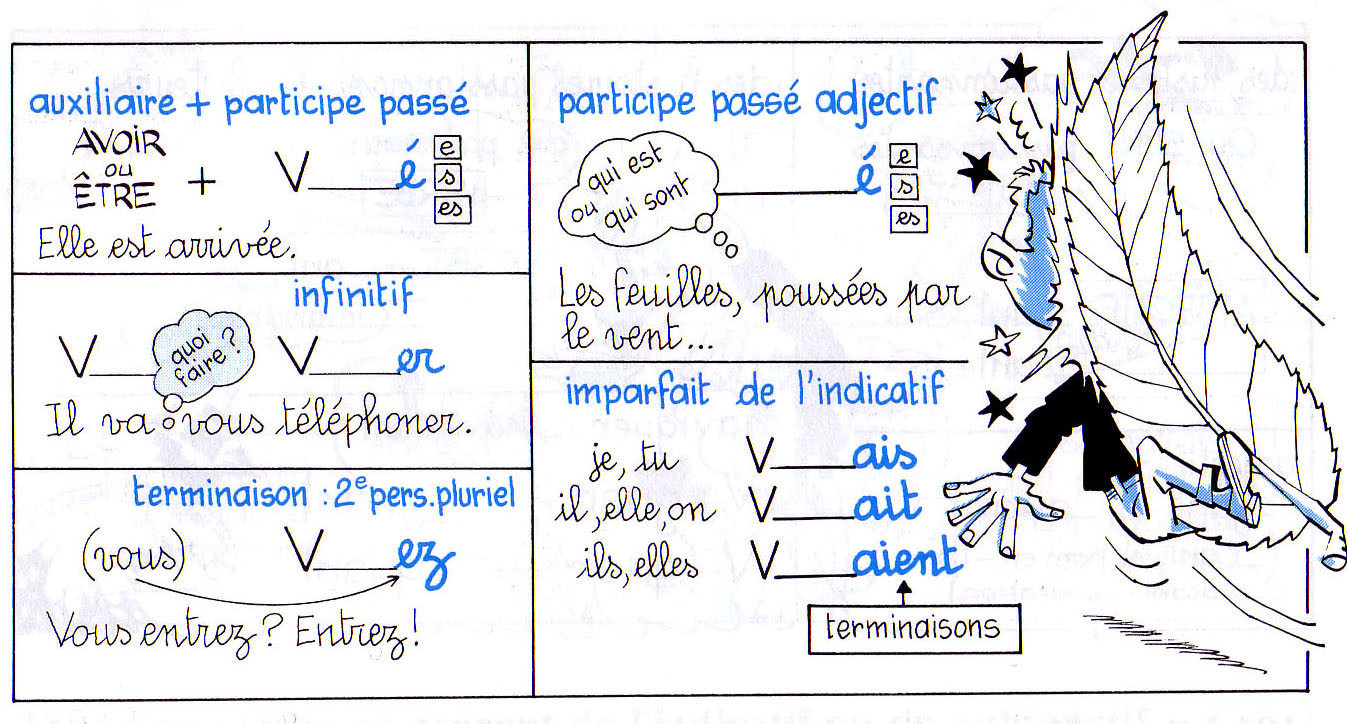 auxiliaire + participe passé
AVOIR
ou
ÊTRE
+ V____é
e
s
es
Elle est arrivée.
infinitif
V____ quoi faire? V____er
Il va vous téléphoner.
terminaison : 2e pers. pluriel
(vous) V____ez
Vous entrez ? Entrez !
participe passé adjectif
qui est
ou qui sont
____é
e
s
es
Les feuilles, poussées par
le vent...
imparfait de l'indicatif
je, tu V____ais
il, elle, on V____ait
ils, elles V____aient
terminaisons